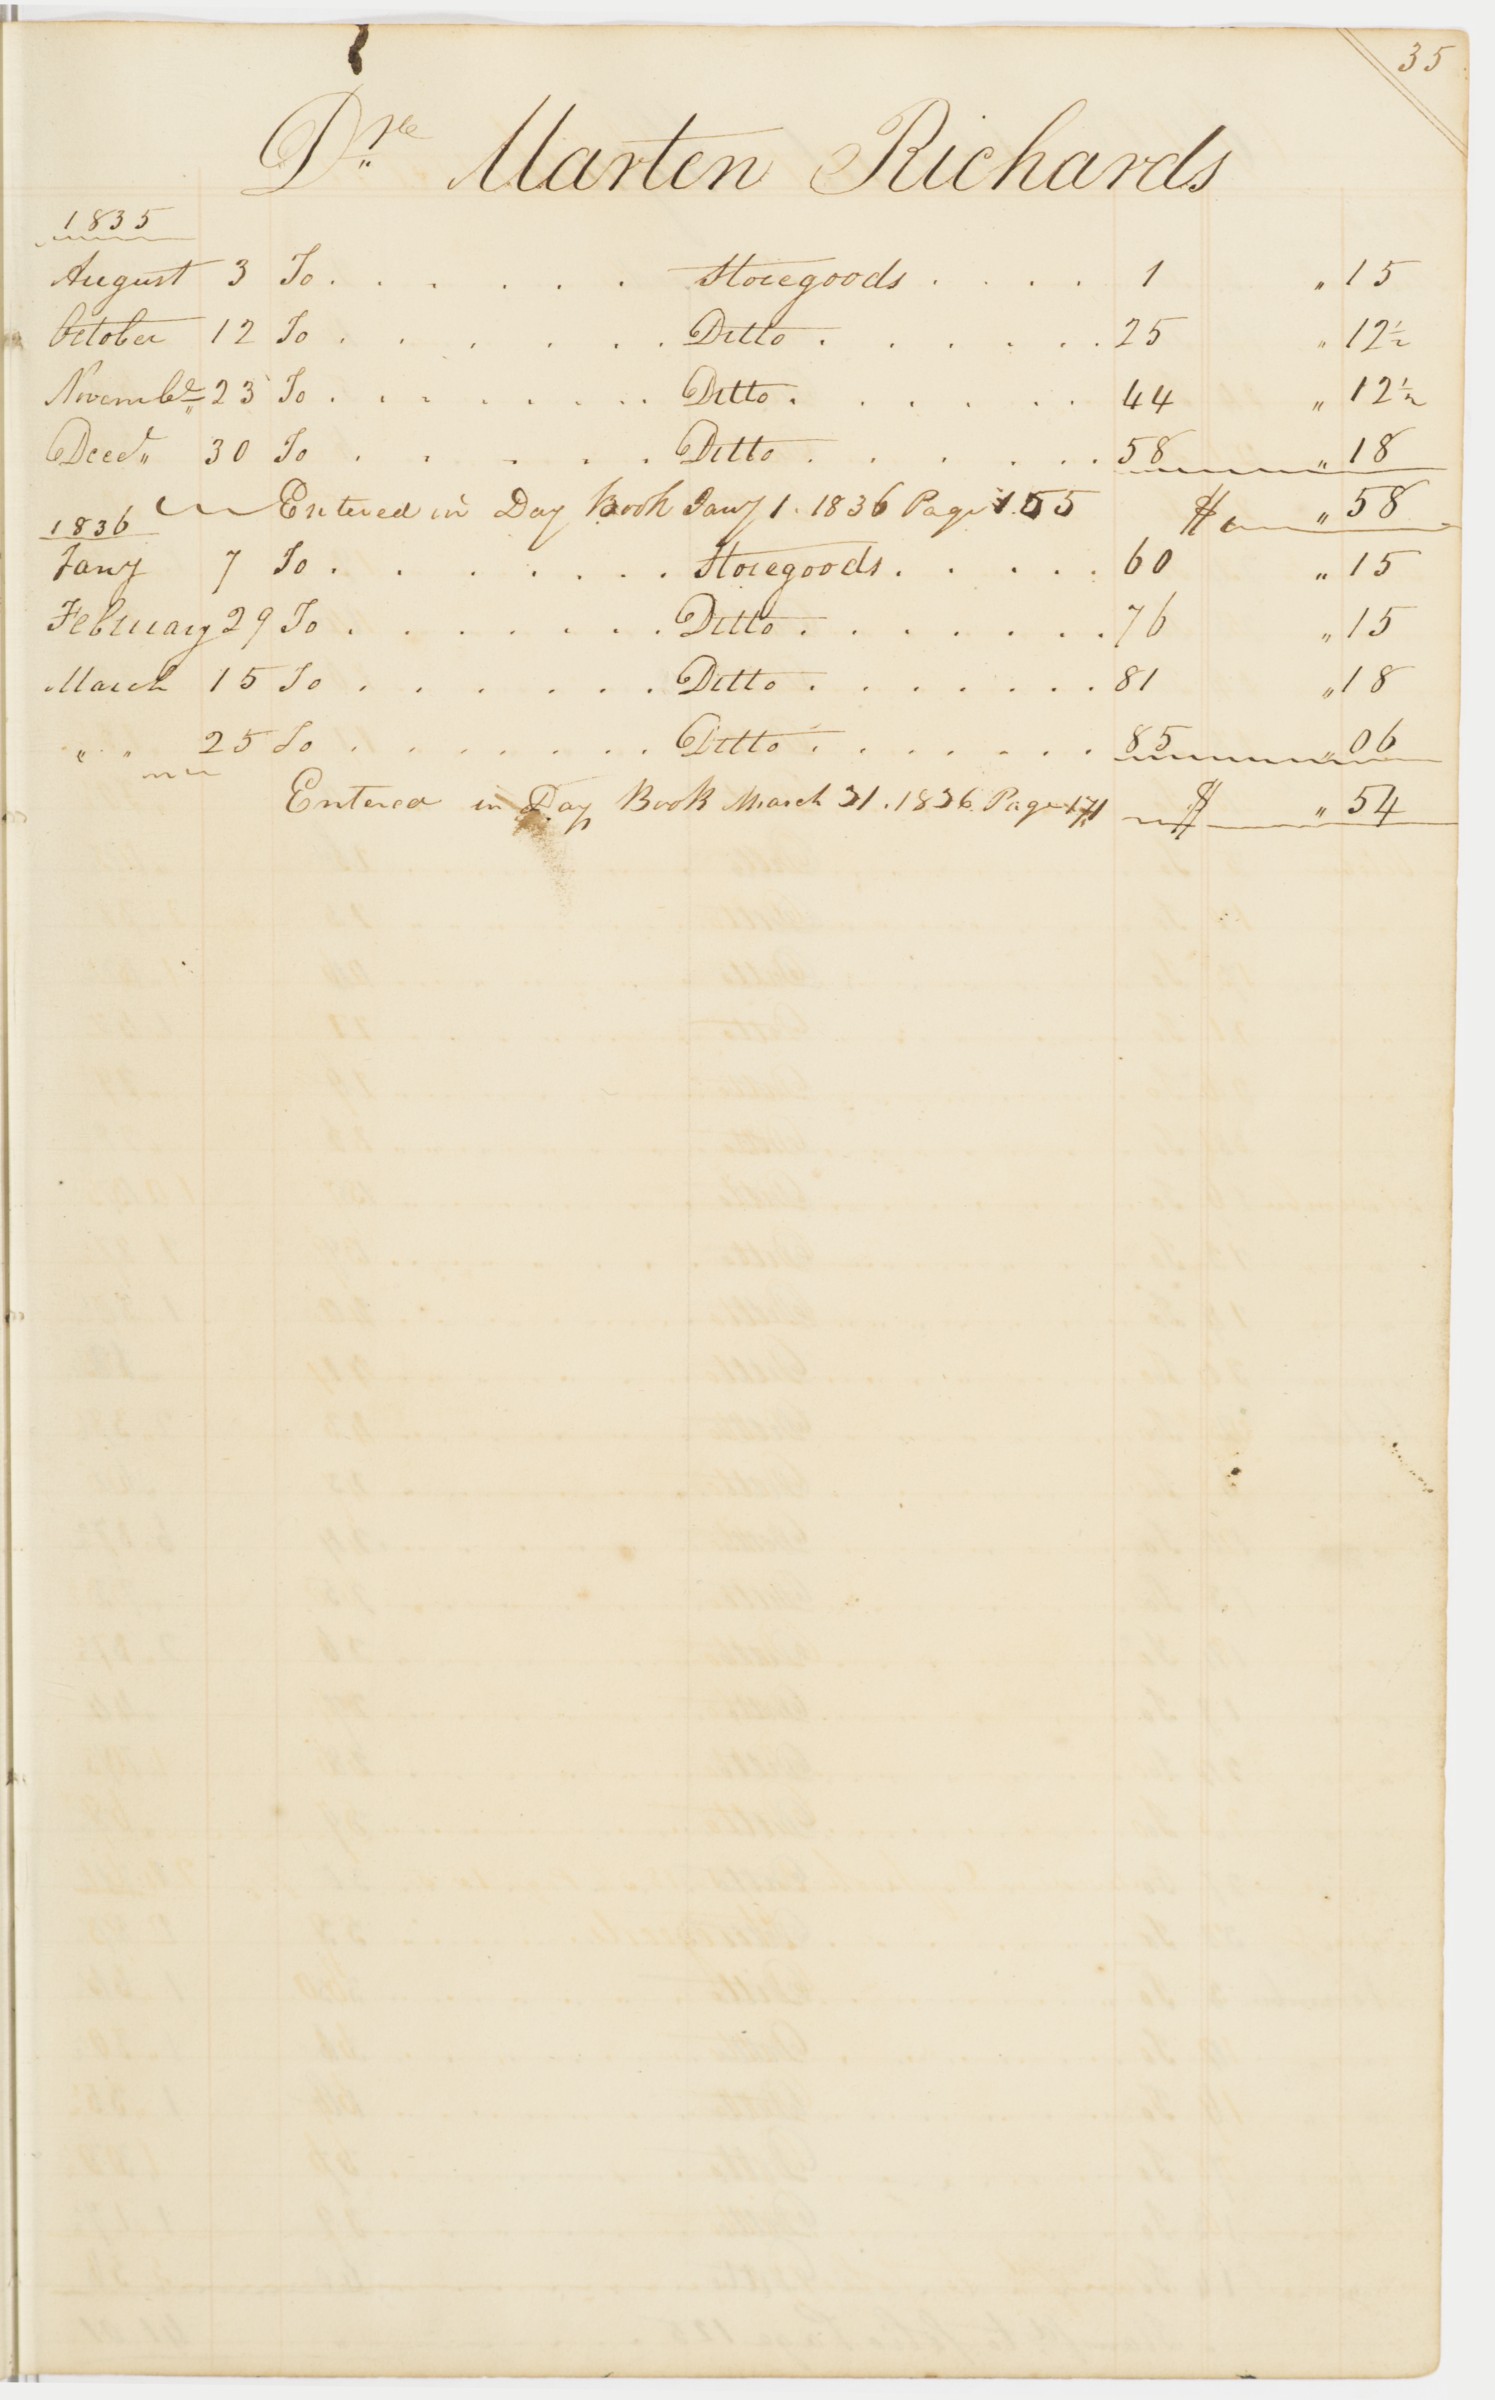 35
Dr. Marten Richards
1835
August 3 To . . . . . . Storegoods . . . . 1 " 15
October 12 To . . . . . . . Ditto . . . . . . 25 " 12½
Novembr 23 To . . . . . . . . Ditto . . . . . . 44 " 12½
Decer " 30 To . . . . . . Ditto . . . . . . 58 " 18
Entered in Day Book Jany 1. 1836 Page 155 $ " 58
1836
Jany 7 To . . . . . . . Storegoods . . . . . 60 " 15
February 29 To . . . . . . . Ditto . . . . . . . 76 " 15
March 15 To . . . . . . Ditto . . . . . . . 81 " 18
" " 25 To . . . . . . . Ditto . . . . . . . 85 " 06
Entered in Day Book March 31. 1836 Page 171 $ " 54